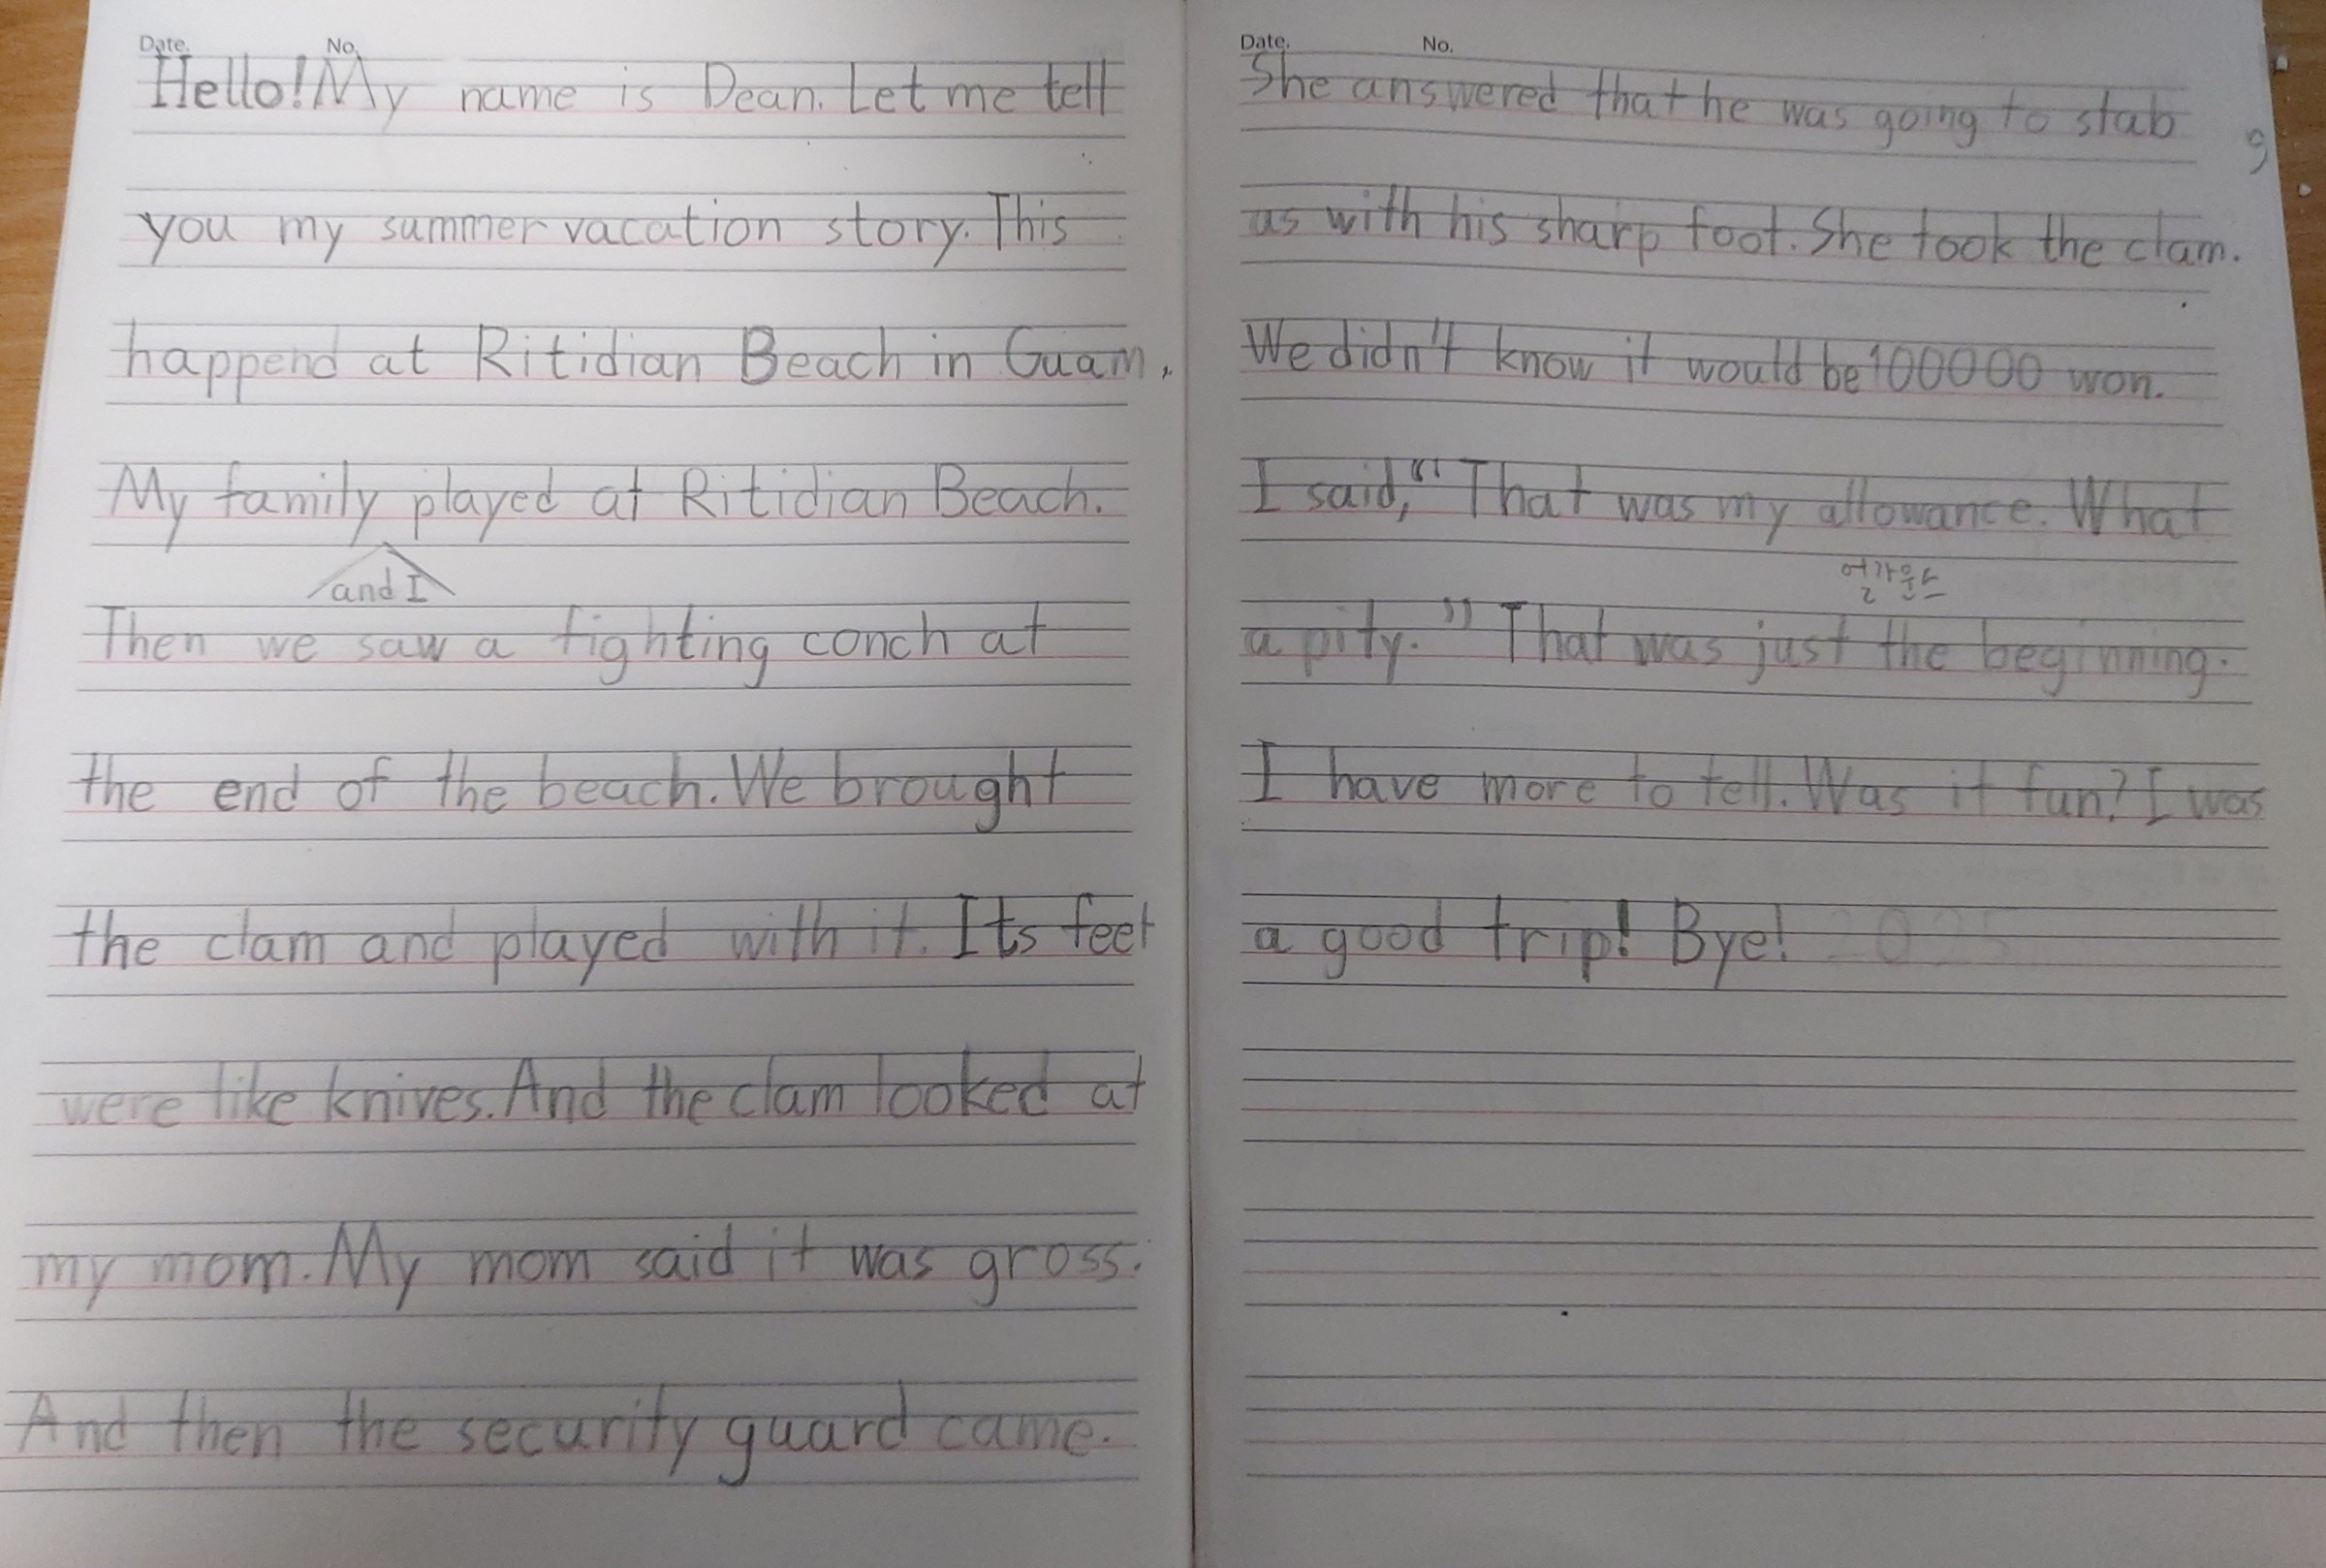 Date. No.
Hello! My name is Dean. Let me tell
you my summer vacation story. This
happend at Ritidian Beach in Guam.
My family played at Ritidian Beach.
and I
Then we saw a fighting conch at
the end of the beach. We brought
the clam and played with it. Its feet
were like knives. And the clam looked at
my mom. My mom said it was gross.
And then the security guard came.
Date. No.
She answered that he was going to stab
us with his sharp foot. She took the clam.
We didn't know it would be 100000 won.
I said, "That was my allowance. What
a pity." That was just the beginning.
I have more to tell. Was it fun? I was
a good trip! Bye!